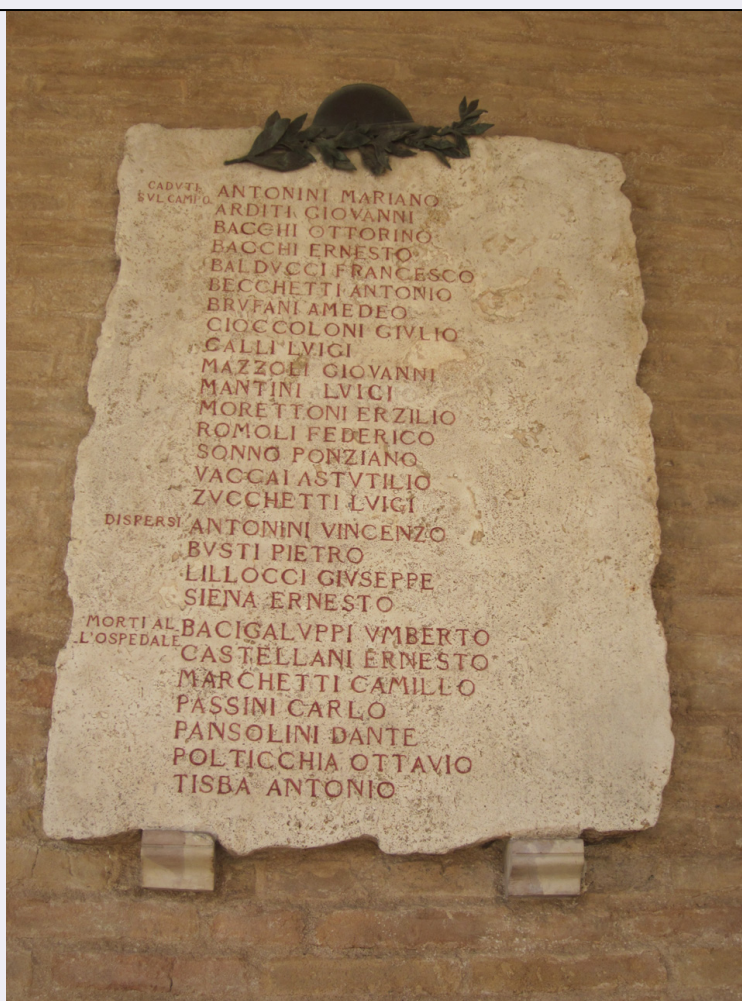 CADVTI
SVL CAMPO
ANTONINI MARIANO
ARDITI GIOVANNI
BACCHI OTTORINO
BACCHI ERNESTO
BALDVCCI FRANCESCO
BECCHETTI ANTONIO
BRVFANI AMEDEO
CIOCCOLONI GIVLIO
GALLI LVIGI
MAZZOLI GIOVANNI
MANTINI LVIGI
MORETTONI ERZILIO
ROMOLI FEDERICO
SONNO PONZIANO
VACCAI ASTVTILIO
ZVCCHETTI LVIGI
DISPERSI ANTONINI VINCENZO
BVSTI PIETRO
LILLOCCI GIVSEPPE
SIENA ERNESTO
MORTI AL
L'OSPEDALE
BACIGALVPPI VMBERTO
CASTELLANI ERNESTO
MARCHETTI CAMILLO
PASSINI CARLO
PANSOLINI DANTE
POLTICCHIA OTTAVIO
TISBA ANTONIO